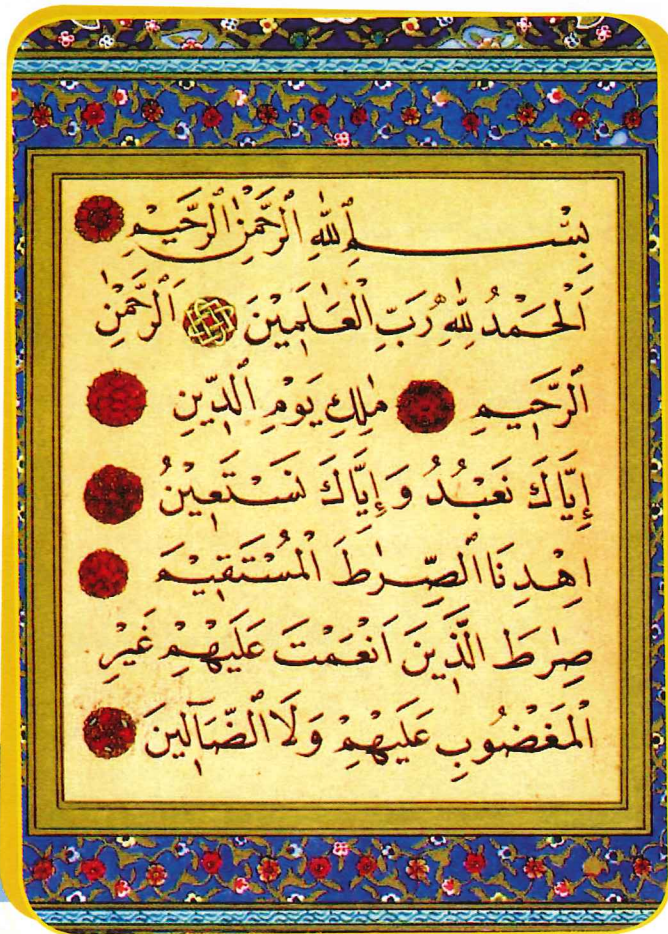 بِسْمِ ٱللّٰهِ ٱلرَّحْمٰنِ ٱلرَّحٖيمِ
اَلْحَمْدُ لِلّٰهِ رَبِّ الْعَالَمٖينَ اَلرَّحْمٰنِ
ٱلرَّحٖيمِ مٰلِكِ يَوْمِ ٱلدّٖينِ
إِيَّاكَ نَعْبُدُ وَإِيَّاكَ نَسْتَعٖينُ
اِهْدِنَا ٱلصِّرٰطَ الْمُسْتَقٖيمَ
صِرٰطَ الَّذٖينَ اَنْعَمْتَ عَلَيْهِمْ غَيْرِ
الْمَغْضُوبِ عَلَيْهِمْ وَلَا ٱلضَّٓالّٖينَ